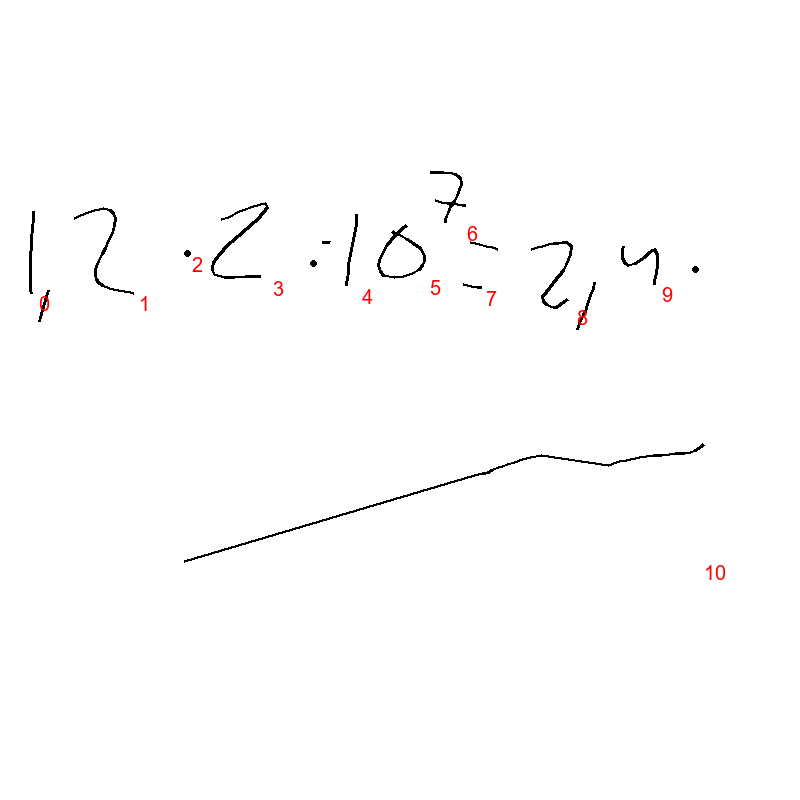 1,2 · 2 · 10⁷ = 2,4 ·
0 1 2 3 4 5 6 7 8 9
10